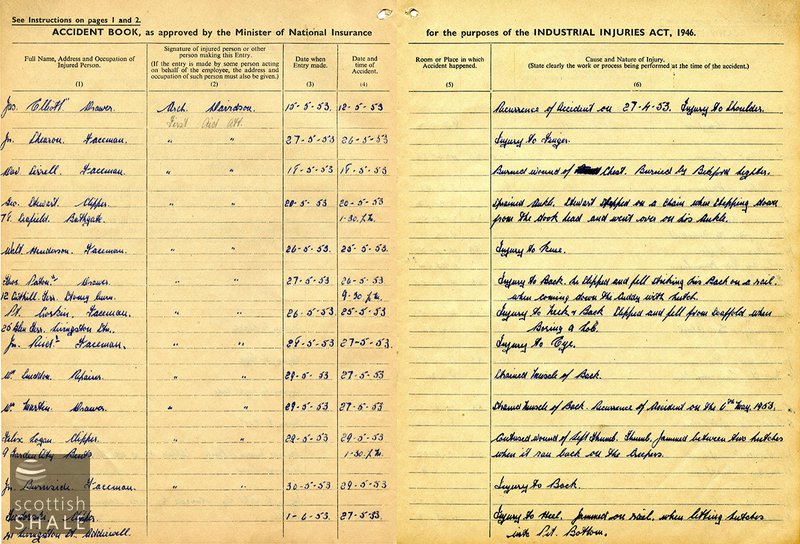 See Instructions on pages 1 and 2.
ACCIDENT BOOK, as approved by the Minister of National Insurance for the purposes of the INDUSTRIAL INJURIES ACT, 1946.
Full Name, Address and Occupation of Injured Person. (1)
Signature of injured person or other person making this Entry. (If the entry is made by some person acting on behalf of the employee, the address and occupation of such person must also be given.) (2)
Date when Entry made. (3)
Date and time of Accident. (4)
Room or Place in which Accident happened. (5)
Cause and Nature of Injury. (State clearly the work or process being performed at the time of the accident.) (6)
Jas. Elliott Drawer Arch. Davidson. 15-5-53 12-5-53 Recurrence of Accident on 27-4-53. Injury to Shoulder.
First Aid Att.
Jn. Shearon Faceman " " 27-5-53 26-5-53 Injury to Finger.
Dav. Faceman. " " 18-5-53 18-5-53 Burned wound of Chest. Burned by Bickford Lighter.
Geo. Stewart Clipper " " 20-5-53 20-5-53 Sprained Ankle. Stewart stepped on a chain when stepping down
Bathgate 1-30 p.m. from the dook head and went over on his Ankle.
Walt. Henderson Faceman " " 26-5-53 25-5-53 Injury to Knee.
Drawer " " 27-5-53 26-5-53 Injury to Back. He slipped and fell striking his Back on a rail.
12 Terr. Stoney burn. 9-30 p.m. when coming down the with hutch.
Pt. Faceman " " 26-5-53 25-5-53 Injury to Neck & Back Slipped and fell from scaffold when
26 Glen Terr. Livingston Stn. Boring a hole.
Jn. Reid Faceman. " " 28-5-53 27-5-53 Injury to Eye.
Wm. Repairer " " 29-5-53 27-5-53 Strained Muscle of Back.
Wm. Martin Drawer " " 29-5-53 27-5-53 Strained Muscle of Back. Recurrence of Accident on the 6th May. 1953.
Felix Logan Clipper " " 29-5-53 29-5-53 Contused wound of Left Thumb. Thumb jammed between two hutches
9 Garden City Bents 1-30 p.m. when it ran back on the Creepers.
Jn. Burnside Faceman " " 30-5-53 29-5-53 Injury to Back.
" " 1-6-53 27-5-53 Injury to Heel. Jammed on rail, when letting hutches
Livingston St. into Pit Bottom.
scottish
SHALE